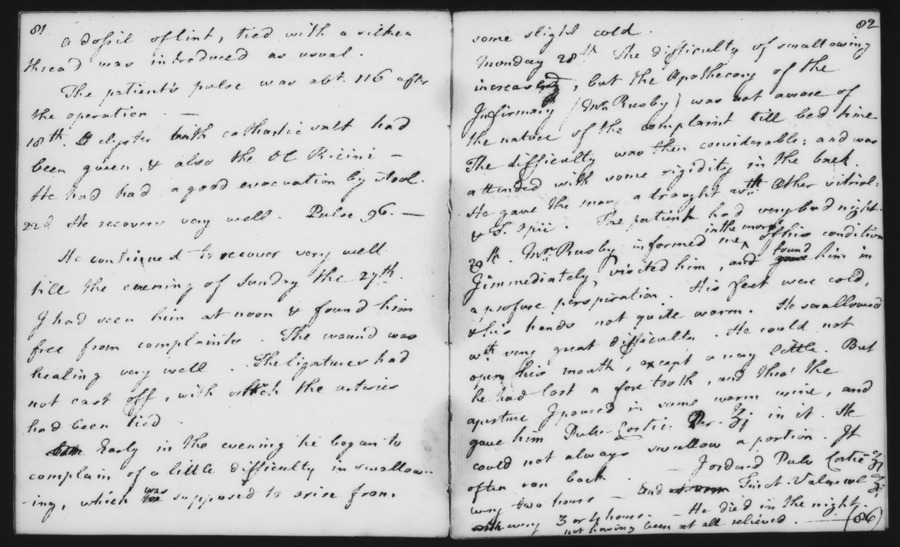 81
a dossil of lint, tied with a silken
thread was introduced as usual.
The patient's pulse was abt. 116 after
the operation. —
18th. A clyster with cathartic salt had
been given, & also the Ol Ricini —
He had had a good evacuation by stool.
22d He recovers very well. Pulse 96. —
He continued to recover very well
till the evening of Sunday the 27th.
I had seen him at noon & found him
free from complaints. The wound was
healing very well. The ligatures had
not cast off, with which the arteries
had been tied.
Early in the evening he began to
complain of a little difficulty in swallow-
-ing, which was supposed to arise from
82
some slight cold.
Monday 28th The difficulty of swallowing
increased, but the Apothecary of the
Infirmary (Mr. Rusby) was not aware of
the nature of the complaint till bed time.
The difficulty was then considerable; and was
attended with some rigidity in the back.
He gave the man a draught with Æther vitriol:
& T. Opii. The patient had very bad night.
29th. Mr. Rusby informed me in the morng of his condition
I immediately visited him, and found him in
a profuse perspiration. His feet were cold,
& his hands not quite warm. He swallowed
wth very great difficulty. He could not
open his mouth, except a very little. But
he had lost a fore tooth, and thro' the
aperture I poured in some warm wine, and
gave him Pulv. Cortic: Per. ʒj in it. He
could not always swallow a portion. It
often ran back. — I ordered Pulv Cortic ʒj
every two hours — and Tinct.
every 3 or 4 hours. — He died in the night,
not having been at all relieved. — (86)